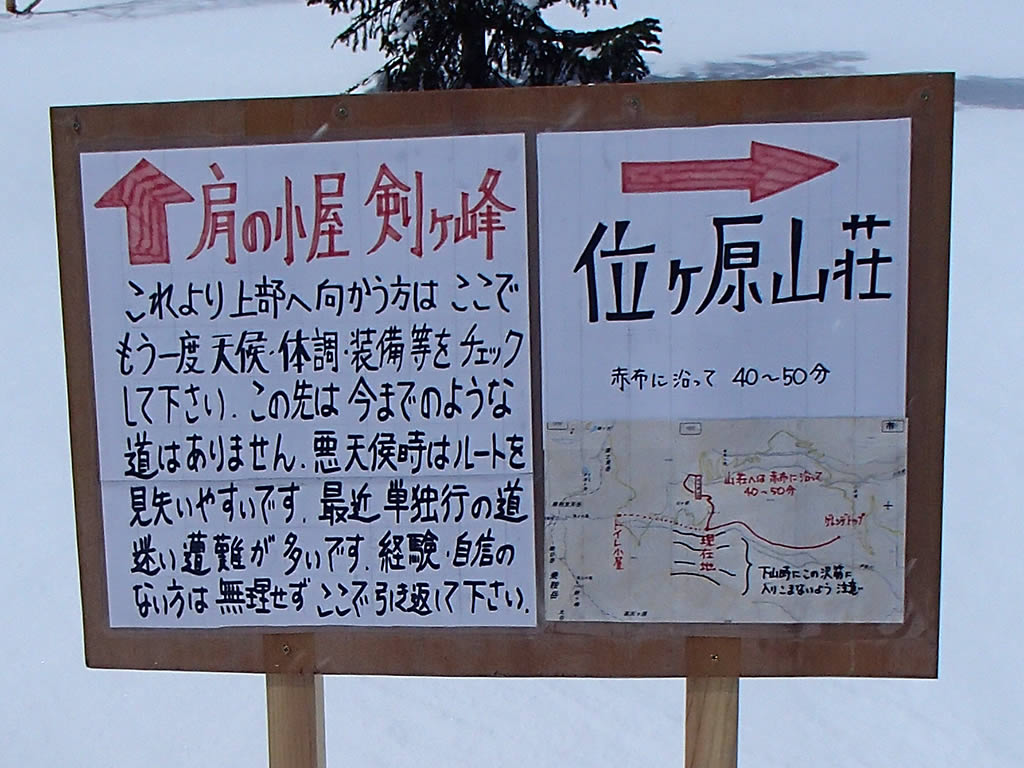 肩の小屋 剣ヶ峰
これより上部へ向かう方は ここで
もう一度 天候・体調・装備等をチェック
して下さい. この先は 今までのような
道はありません. 悪天候時はルートを
見失いやすいです. 最近 単独行の道
迷い遭難が多いです. 経験・自信の
ない方は 無理せず ここで引き返して下さい.
位ヶ原山荘
赤布に沿って 40〜50分
山荘へは 赤布に沿って
40〜50分
トイレ小屋
現在地
乗鞍岳
下山時にこの沢筋に
入りこまないよう 注意